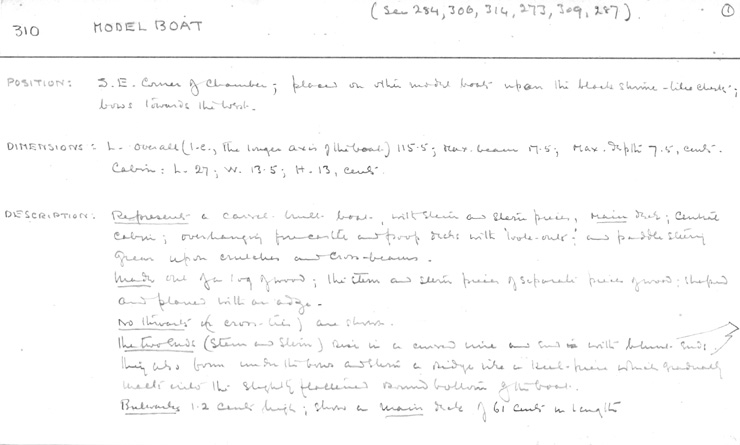 (See 284, 306, 314, 273, 309, 287).
①
310 MODEL BOAT
POSITION: S.E. Corner of Chamber; placed on other model boats upon the black shrine-like chests;
bows towards the West.
DIMENSIONS: L. overall (i.e., the longer axis of the boat) 115.5; Max. beam 17.5; Max. depth 7.5, cents.
Cabin: L. 27; W. 13.5; H. 13, cents.
DESCRIPTION: Represents a carvel-built boat, with stem and stern pieces, main deck; central
cabin; overhanging forecastle and poop decks with 'look-outs'; and paddle steering
gear upon crutches and cross-beams.
Made out of a log of wood; the stem and stern pieces of separate pieces of wood; shaped
and planed with an adze.
No thwarts (cross-ties) are shown.
The two Ends (Stem and Stern) rise in a curved line and end with blunt ends,
they also form under the bows and stern a ridge like a keel-piece which gradually
melts into the slightly flattened round bottom of the boat.
Bulwarks 1.2 cents high; shows a main deck of 61 cents in length